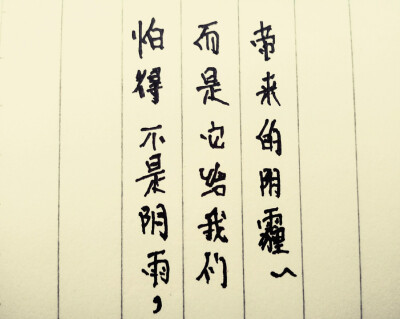 怕得不是阴雨，
而是它给我们
带来的阴霾~